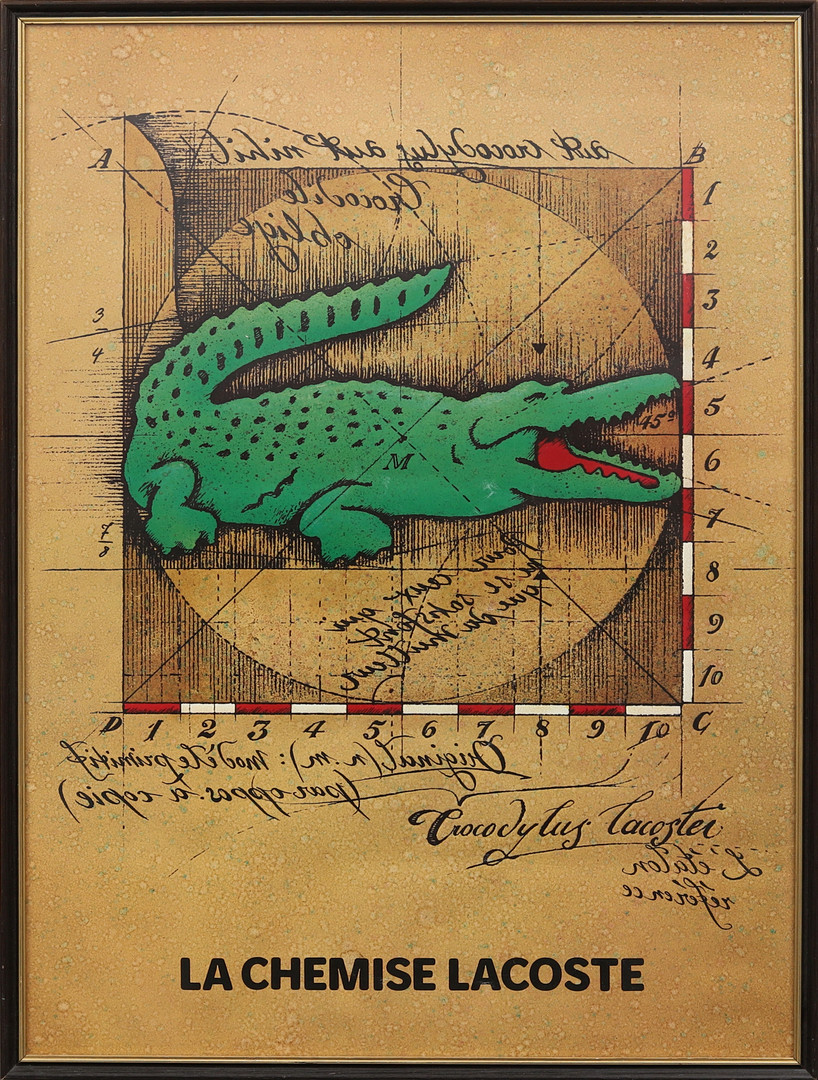 A
B
aut crocodylus aut nihil
Crocodile
oblige
1
2
3
4
5
6
7
8
9
10
3
4
7
8
45°
M
Pour ceux qui
ne se satisfont
que du meilleur
D 1 2 3 4 5 6 7 8 9 10 C
Original (n.m.): modèle primitif
(par oppos. à copie)
Crocodylus lacostei
L'étalon
référence
LA CHEMISE LACOSTE